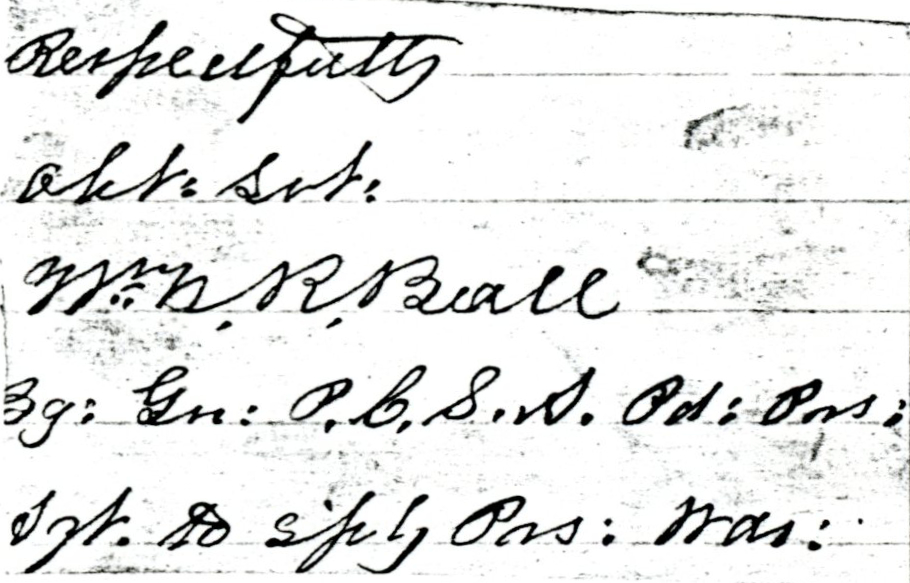 Respectfully
Obt: Svt:
Wm N, R, Beall
Bg: Gn: P. C. S. A. Pd: Prs:
Agt. to s'ply Prs: War: